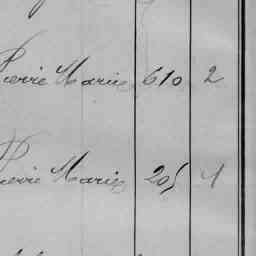 Pierre Marie 610 2
Pierre Marie 205 4